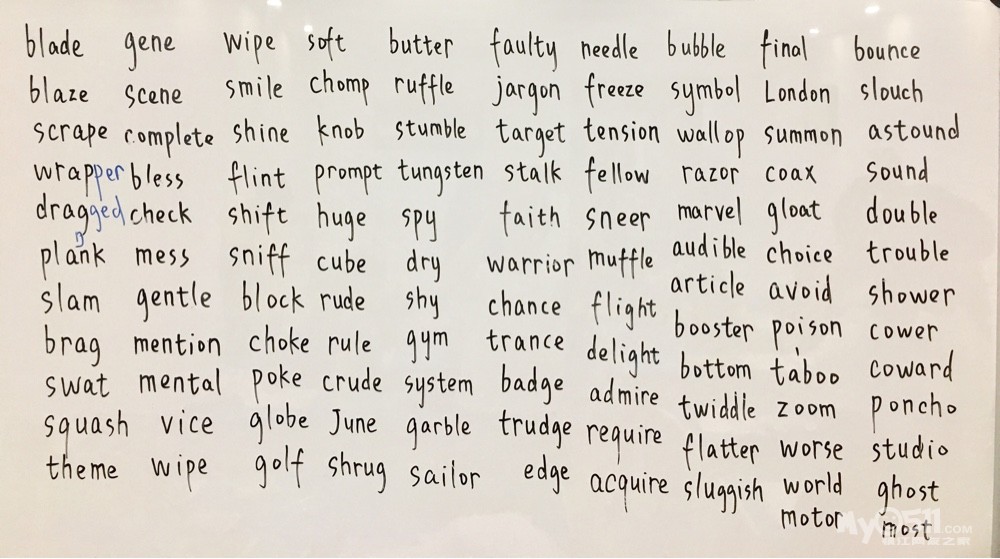 blade gene wipe soft butter faulty needle bubble final bounce
blaze scene smile chomp ruffle jargon freeze symbol London slouch
scrape complete shine knob stumble target tension wallop summon astound
wrapper bless flint prompt tungsten stalk fellow razor coax sound
dragged check shift huge spy faith sneer marvel gloat double
plank mess sniff cube dry warrior muffle audible choice trouble
slam gentle block rude shy chance flight article avoid shower
brag mention choke rule gym trance delight booster poison cower
swat mental poke crude system badge admire bottom taboo coward
squash vice globe June garble trudge require twiddle zoom poncho
theme wipe golf shrug sailor edge acquire flatter worse studio
sluggish world ghost
motor most